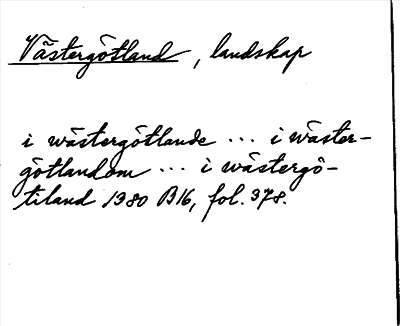 Västergötland, landskap
i wästergötlande ... i wäster-
götlandom ... i wästergö-
tiland 1380 B16, fol. 378.